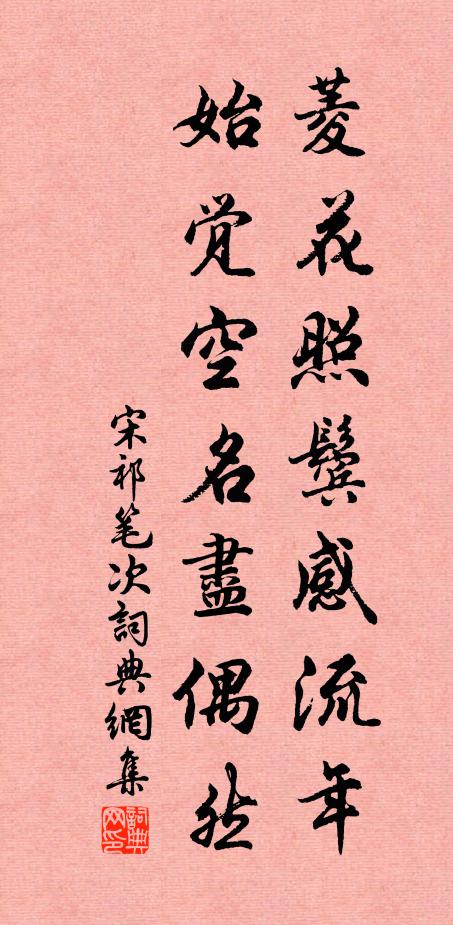 菱花照鬓感流年
始覚空名盡偶然
宋祁笔次詞典網集
詞典网印